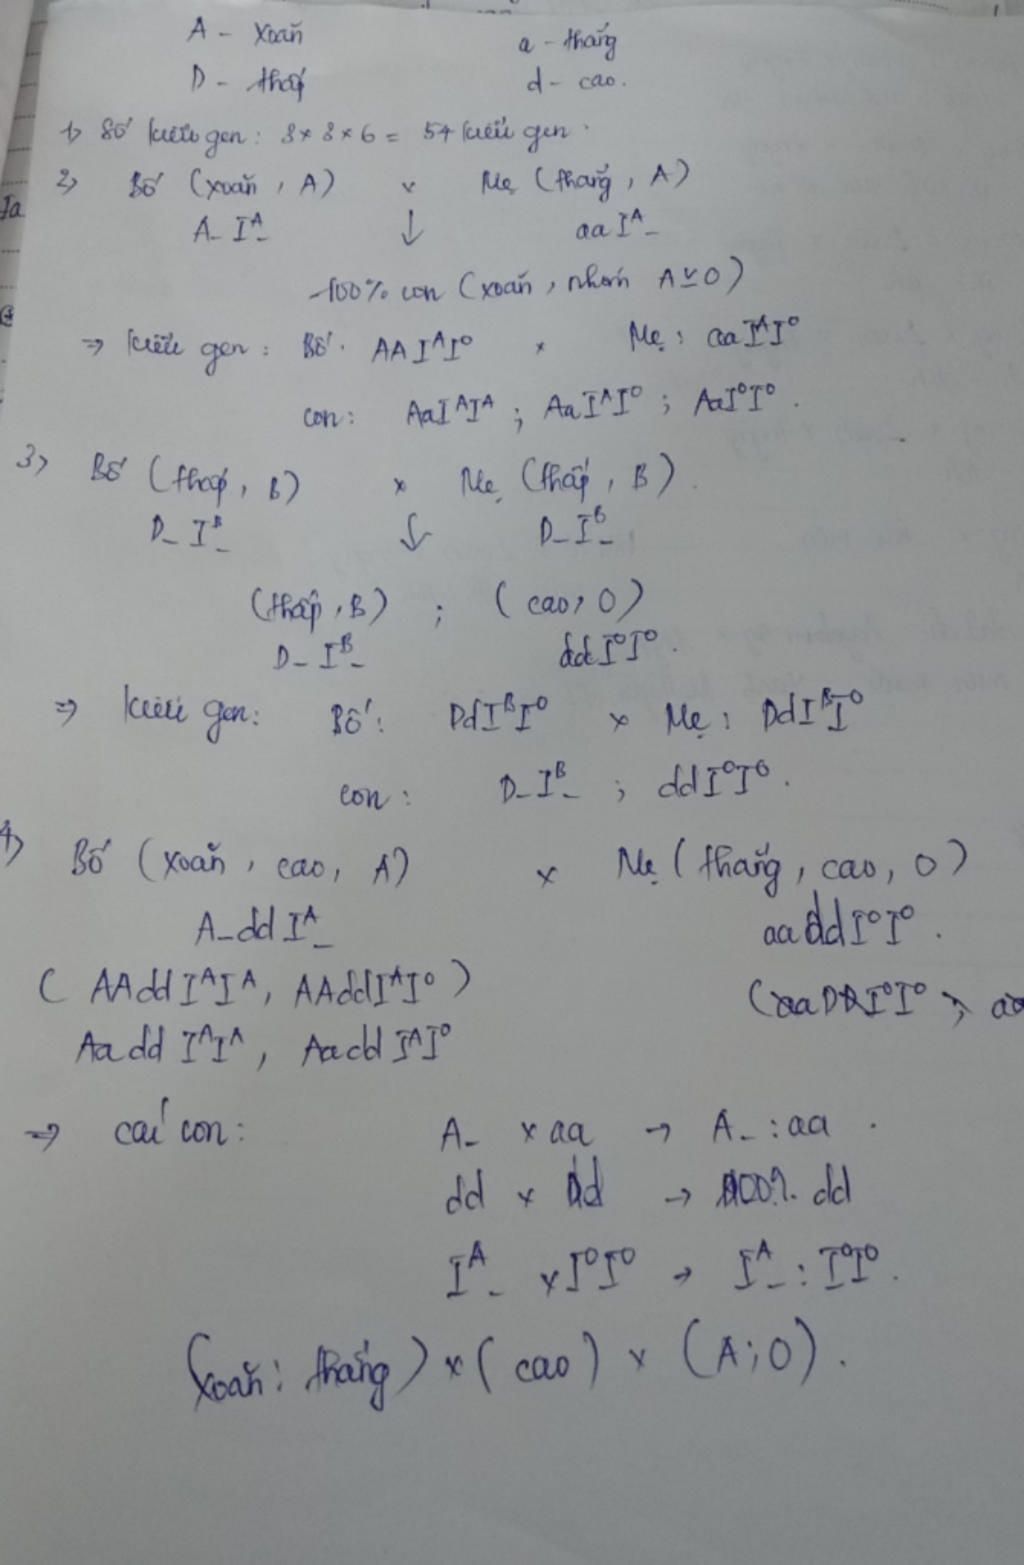 A - xoăn a - thẳng
D - thấp d - cao.
1) Số kiểu gen: 3 × 3 × 6 = 54 kiểu gen.
2) Bố (xoăn, A) × Mẹ (thẳng, A)
A_ Iᴬ_ ↓ aa Iᴬ_
100% con (xoăn, nhóm A v O)
⇒ kiểu gen: Bố: AA IᴬIᴼ × Mẹ: aa IᴬIᴼ
con: AaIᴬIᴬ ; AaIᴬIᴼ ; AaIᴼIᴼ.
3) Bố (thấp, B) × Mẹ (thấp, B).
D_ Iᴮ_ ↓ D_ Iᴮ_
(thấp, B) ; (cao, O)
D_ Iᴮ_ dd IᴼIᴼ.
⇒ kiểu gen: Bố: DdIᴮIᴼ × Mẹ: DdIᴮIᴼ
con: D_Iᴮ_ ; ddIᴼIᴼ.
4) Bố (xoăn, cao, A) × Mẹ (thẳng, cao, O)
A_dd Iᴬ_ aa dd IᴼIᴼ.
(AAdd IᴬIᴬ, AAddIᴬIᴼ)
Aadd IᴬIᴬ, Aadd IᴬIᴼ
⇒ cái con: A_ × aa → A_ : aa.
dd × dd → 100% dd
Iᴬ_ × IᴼIᴼ → Iᴬ_ : IᴼIᴼ.
(xoăn : thẳng) × (cao) × (A ; O).